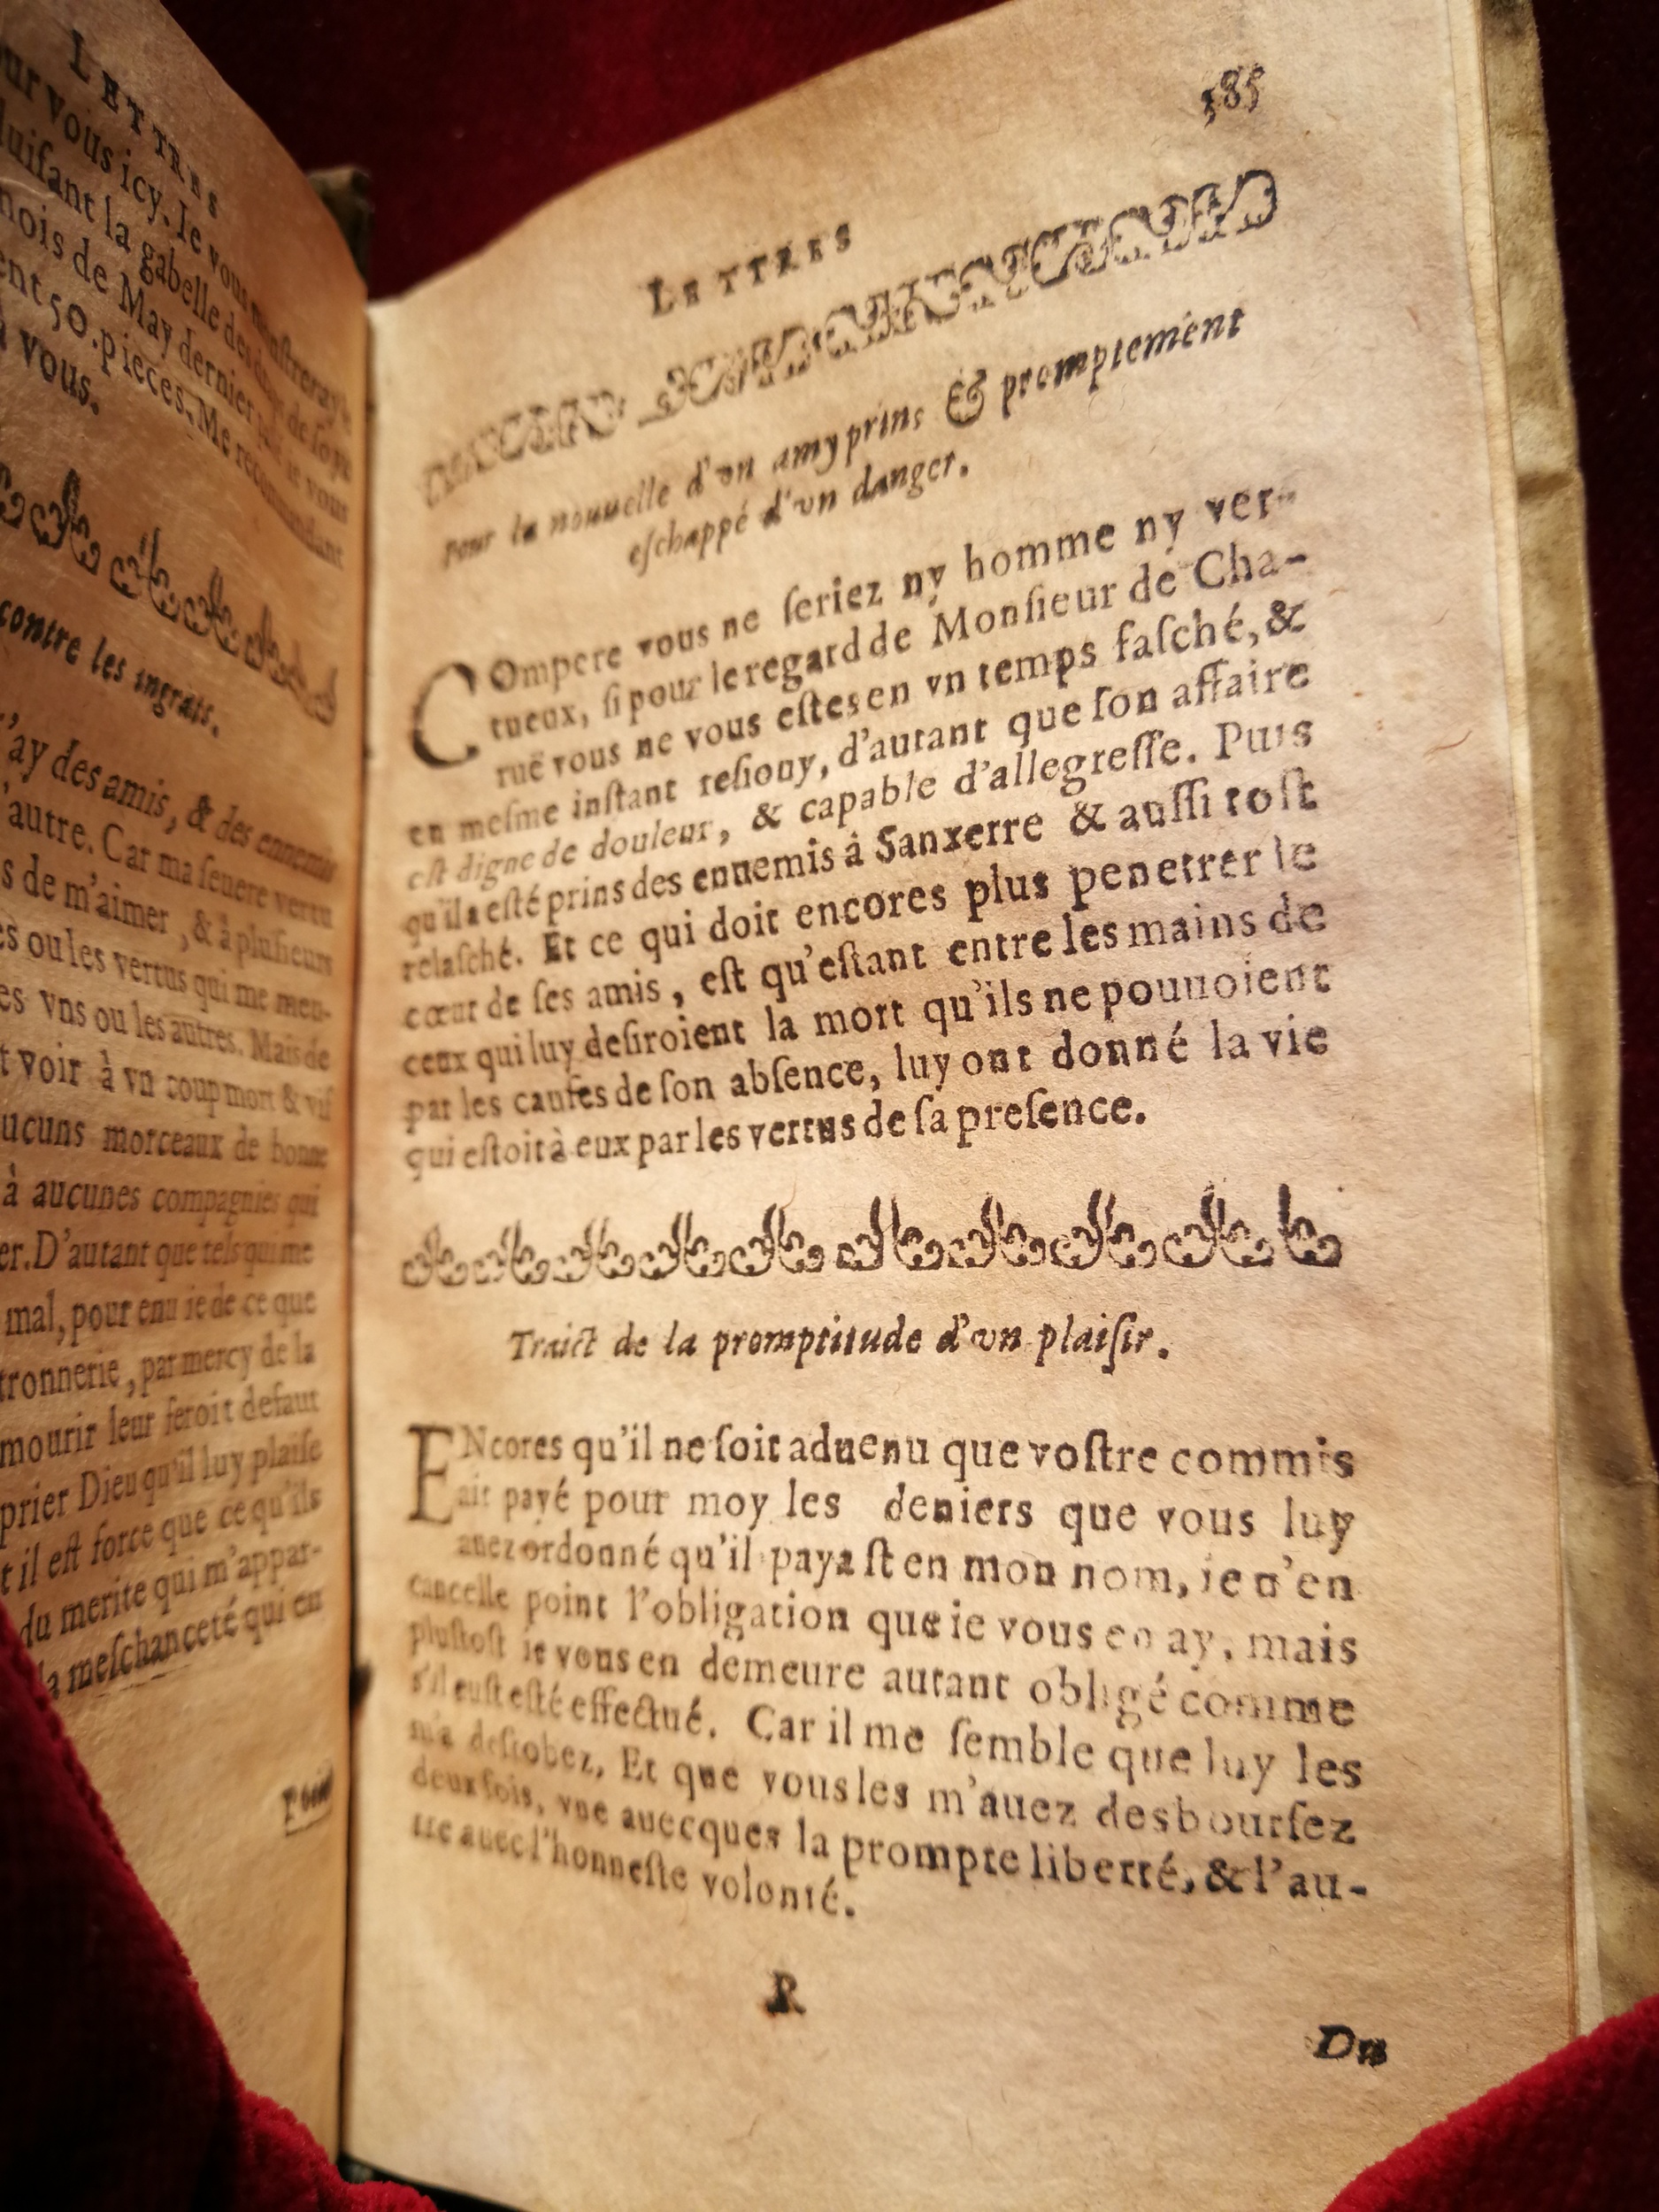 LETTRES
our vous icy. Ie vous monstreray
luisant la gabelle des de soye
mois de May dernier que ie vous
ent 50. pieces. Me recommandant
à vous.
contre les ingrats.
'ay des amis, & des ennemis
'autre. Car ma seuere vertu
s de m'aimer, & à plusieurs
es ou les vertus qui me men-
es vns ou les autres. Mais de
t voir à vn coup mort & vif
ucuns morceaux de bonne
à aucunes compagnies qui
er. D'autant que tels qui me
mal, pour enuie de ce que
tronnerie, par mercy de la
mourir leur feroit defaut
prier Dieu qu'il luy plaise
t il est force que ce qu'ils
du merite qui m'appar-
la meschanceté qui en
385
LETTRES
Pour la nouuelle d'vn amy prins & promptement
eschappé d'vn danger.
COmpere vous ne ſeriez ny homme ny ver-
tueux, ſi pour le regard de Monſieur de Cha-
ruë vous ne vous eſtes en vn temps faſché, &
en meſme inſtant reſiouy, d'autant que ſon affaire
eſt digne de douleur, & capable d'allegreſſe. Puis
qu'il a eſté prins des ennemis à Sanxerre & auſſi toſt
relaſché. Et ce qui doit encores plus penetrer le
cœur de ſes amis, eſt qu'eſtant entre les mains de
ceux qui luy deſiroient la mort qu'ils ne pouuoient
par les cauſes de ſon abſence, luy ont donné la vie
qui eſtoit à eux par les vertus de ſa preſence.
Traict de la promptitude d'vn plaiſir.
ENcores qu'il ne ſoit aduenu que voſtre commis
ait payé pour moy les deniers que vous luy
auez ordonné qu'il payaſt en mon nom, ie n'en
cancelle point l'obligation que ie vous en ay, mais
pluſtoſt ie vous en demeure autant obligé comme
s'il euſt eſté effectué. Car il me ſemble que luy les
m'a deſrobez, Et que vous les m'auez desbourſez
deux fois, vne auecques la prompte liberté, & l'au-
tre auec l'honneſte volonté.
R
Du